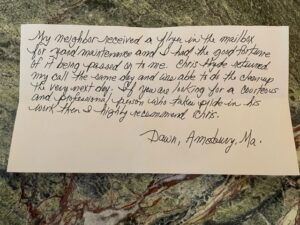 My neighbor received a flyer in the mailbox
for yard maintenance and I had the good fortune
of it being passed on to me. Chris Hyde returned
my call the same day and was able to do the cleanup
the very next day. If you are looking for a courteous
and professional person who takes pride in his
work then I highly recommend Chris.
Dawn, Amesbury, Ma.